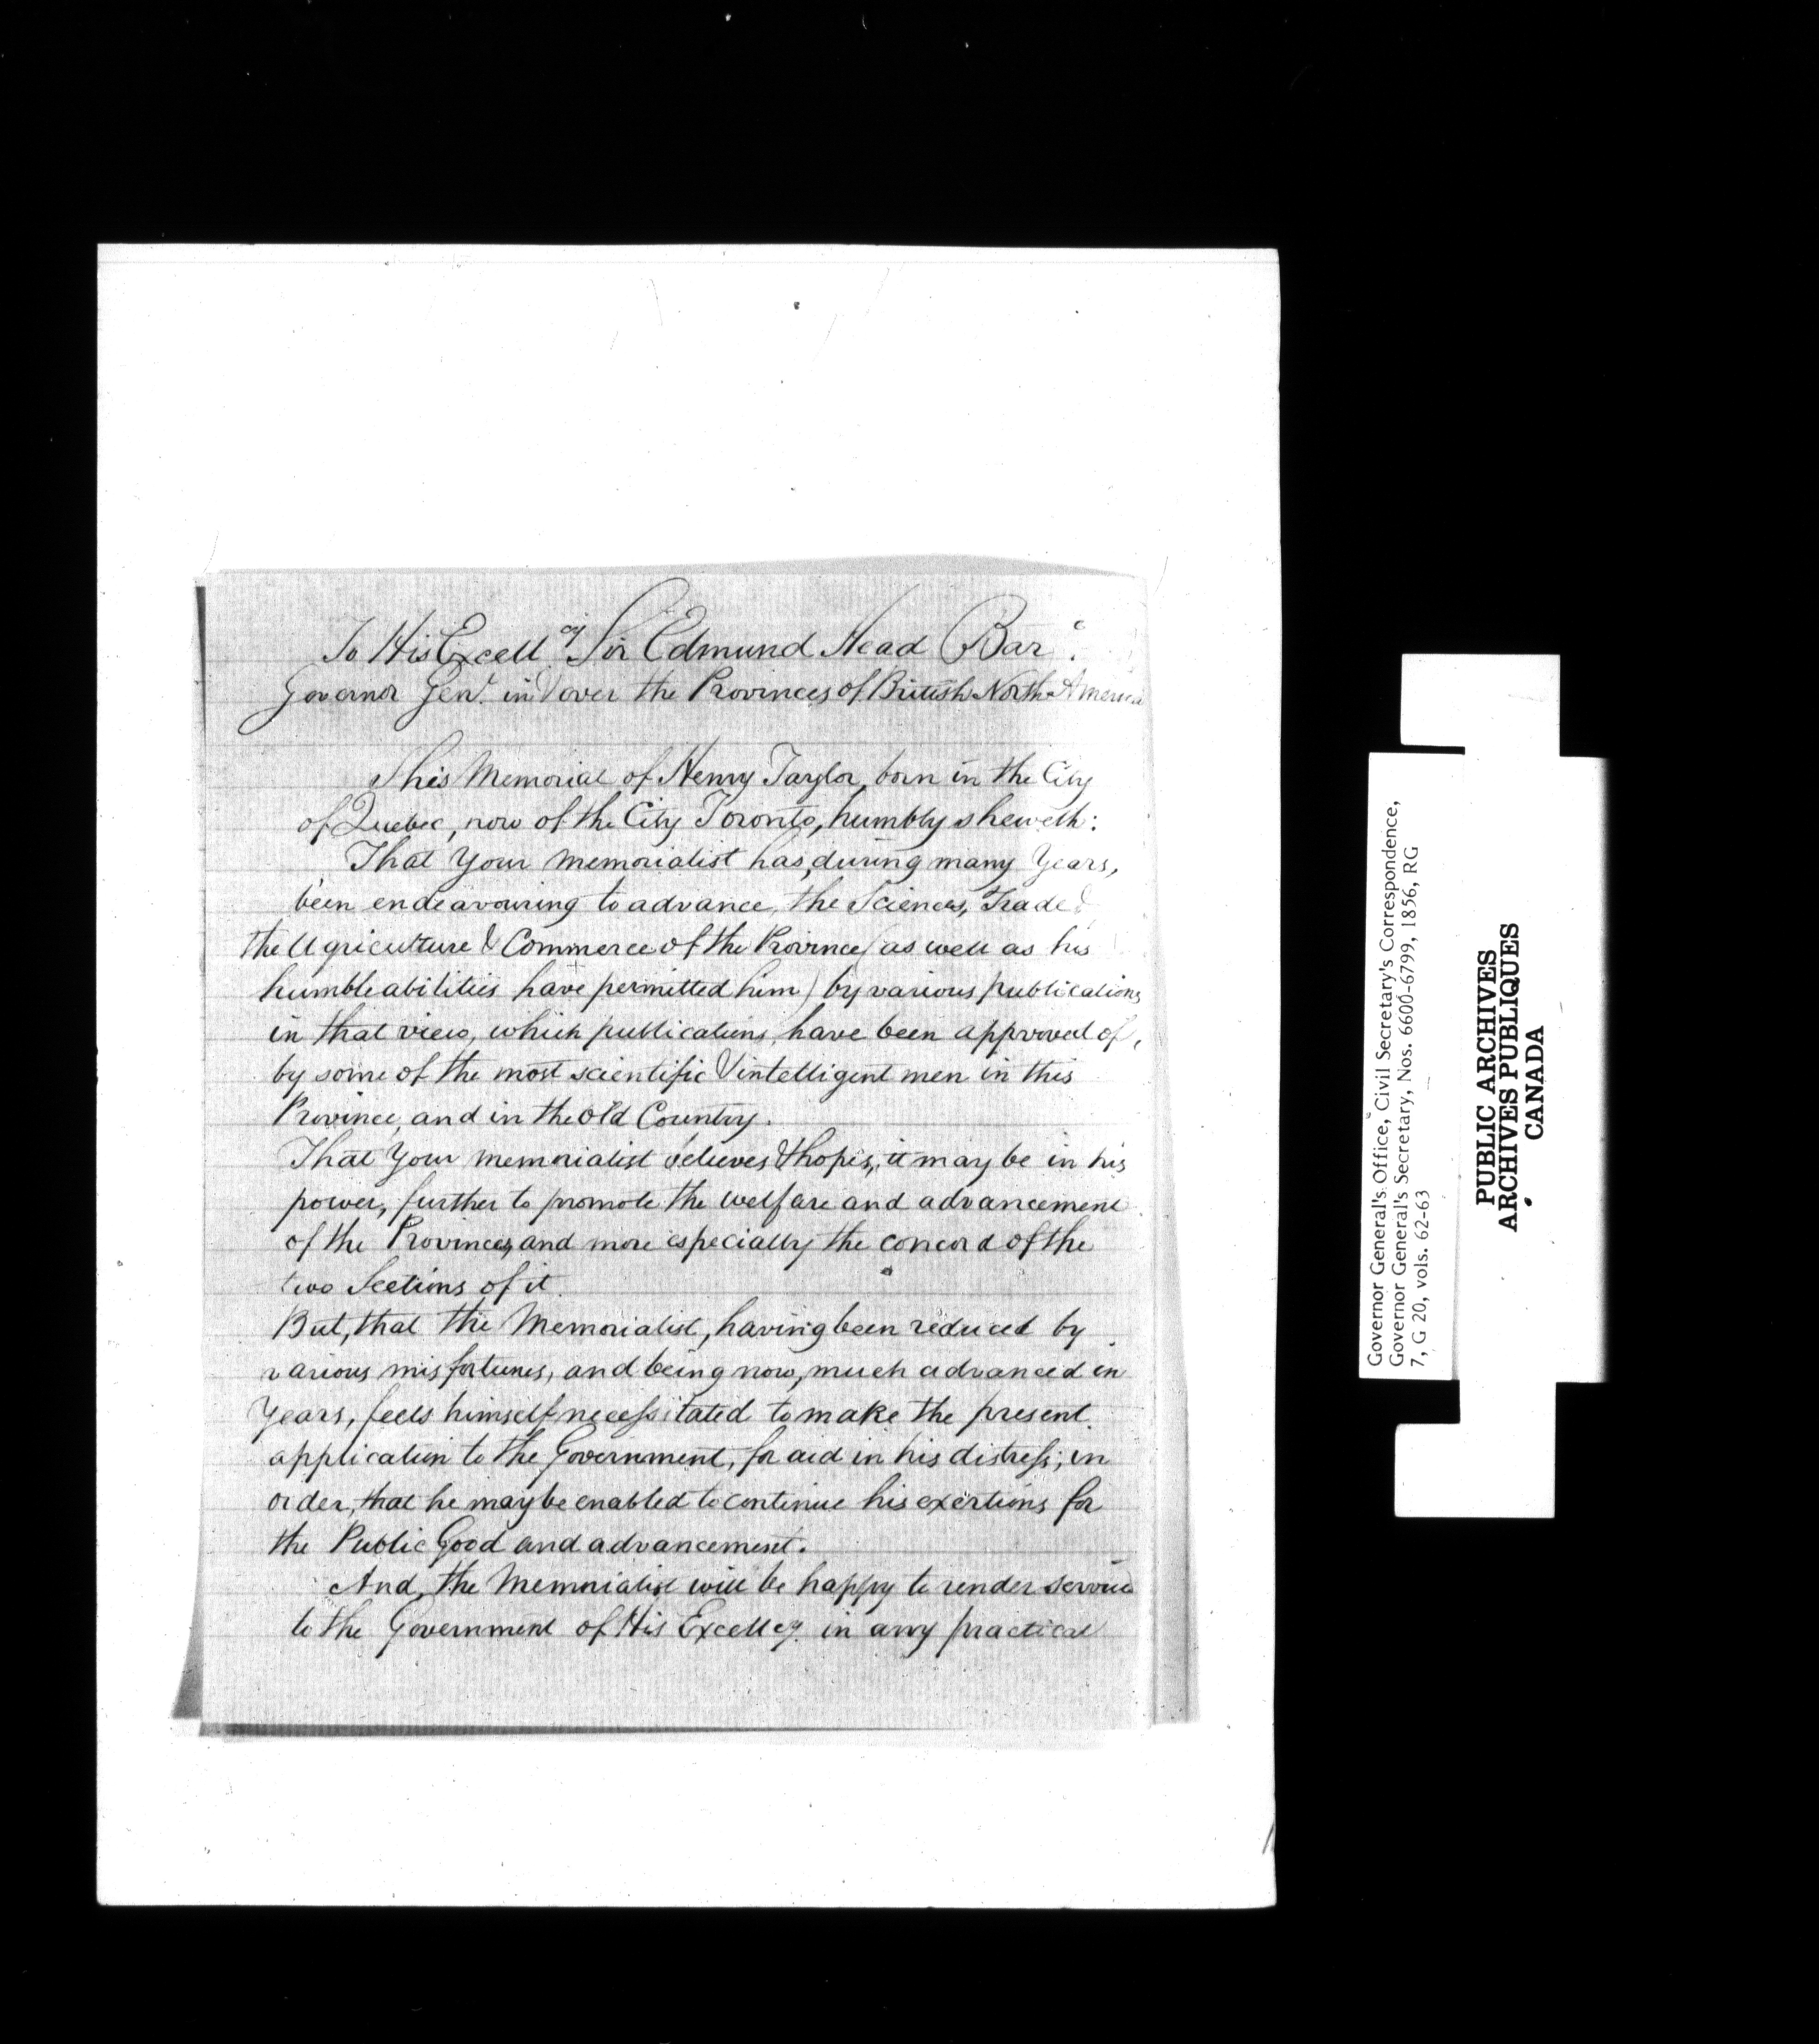 To His Excell.cy Sir Edmund Head Bart.
Governor Genl. in & over the Provinces of British North America
This Memorial of Henry Taylor, born in the City
of Quebec, now of the City Toronto, humbly sheweth:
That Your memorialist has, during many Years,
been endeavouring to advance, the Sciences, Trade &
the Agriculture & Commerce of the Province (as well as his
humble abilities have permitted him) by various publications
in that view, which publications, have been approved of,
by some of the most scientific & intelligent men in this
Province, and in the old Country.
That Your memorialist believes & hopes, it may be in his
power, further to promote the welfare and advancement
of the Provinces, and more especially the concord of the
two Sections of it.
But, that the Memorialist, having been reduced by
various misfortunes, and being now, much advanced in
Years, feels himself necessitated to make the present
application to the Government, for aid in his distress; in
order, that he may be enabled to continue his exertions for
the Public Good and advancement.
And, the Memorialist will be happy to render service
to the Government of His Excellcy. in any practical
Governor General's Office, Civil Secretary's Correspondence,
Governor General's Secretary, Nos. 6600-6799, 1856, RG
7, G 20, vols. 62-63
PUBLIC ARCHIVES
ARCHIVES PUBLIQUES
CANADA